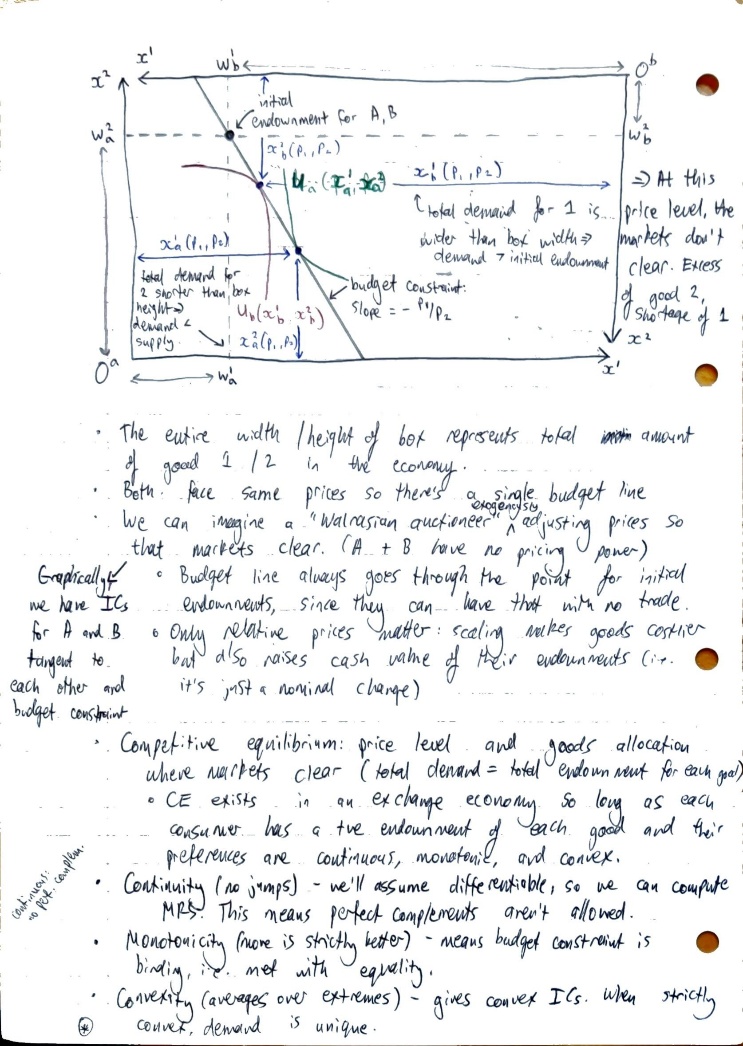 x¹
w_b¹
O^b
x²
initial
endownment for A, B
w_a²
w_b²
x_b²(p₁, p₂)
u_a(x_a¹, x_a²)
x_b¹(p₁, p₂)
total demand for 1 is
wider than box width ⇒
demand > initial endownment
⇒ At this
price level, the
markets don't
clear. Excess
of good 2,
shortage of 1
x_a¹(p₁, p₂)
total demand for
2 shorter than box
height ⇒
demand <
supply.
u_b(x_b¹, x_b²)
x_a²(p₁, p₂)
budget constraint:
slope = - p₁/p₂
x²
O^a
w_a¹
x¹
• The entire width / height of box represents total amount
of good 1 / 2 in the economy.
• Both face same prices so there's a single budget line
• We can imagine a "Walrasian auctioneer" exogenously adjusting prices so
that markets clear. (A + B have no pricing power)
Graphically
we have ICs
for A and B
tangent to
each other and
budget constraint
◦ Budget line always goes through the point for initial
endownments, since they can have that with no trade.
◦ Only relative prices matter: scaling makes goods costlier
but also raises cash value of their endownments (i.e.
it's just a nominal change)
• Competitive equilibrium: price level and goods allocation
where markets clear (total demand = total endownment for each good)
◦ CE exists in an exchange economy so long as each
consumer has a +ve endownment of each good and their
preferences are continuous, monotonic, and convex.
continuous:
no perf. complem.
• Continuity (no jumps) - we'll assume differentiable, so we can compute
MRS. This means perfect complements aren't allowed.
• Monotonicity (more is strictly better) - means budget constraint is
binding, i.e. met with equality.
• Convexity (averages over extremes) - gives convex ICs. When strictly
convex, demand is unique.